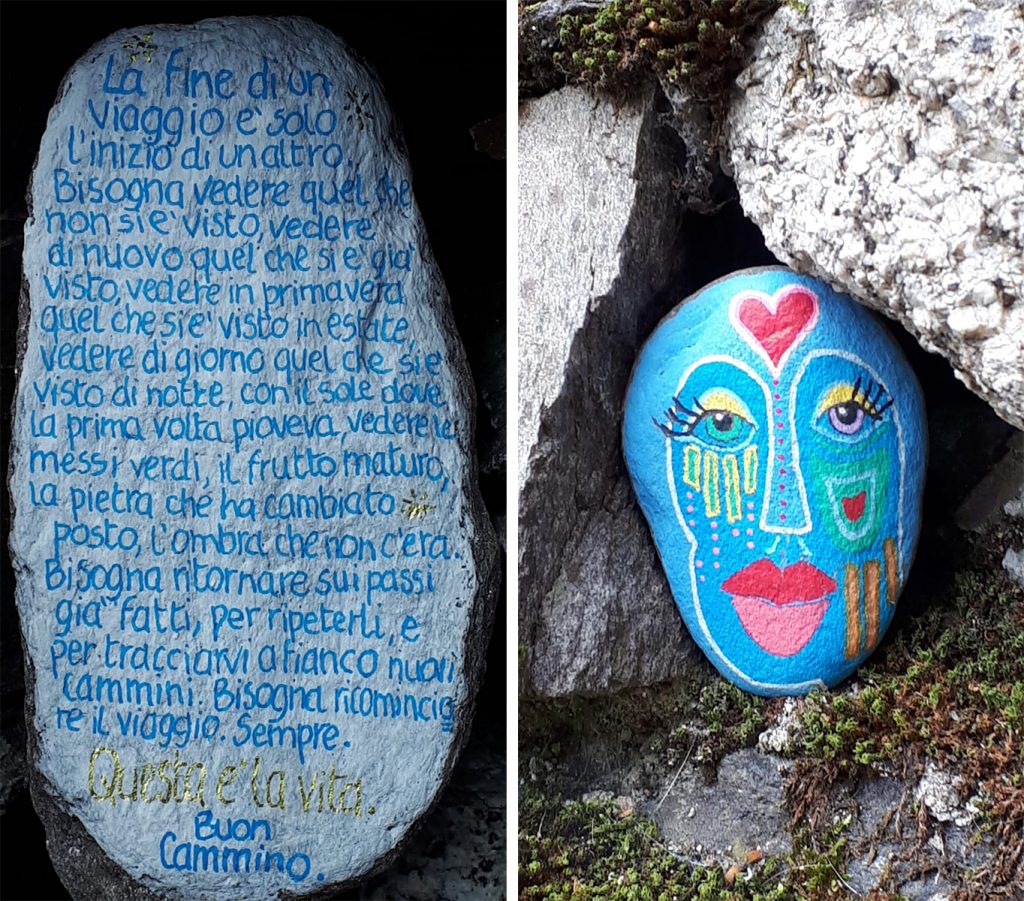 La fine di un
viaggio e' solo
l'inizio di un altro.
Bisogna vedere quel che
non si e' visto, vedere
di nuovo quel che si e' gia'
visto, vedere in primavera
quel che si e' visto in estate,
vedere di giorno quel che si e'
visto di notte, con il sole dove
la prima volta pioveva, vedere le
messi verdi, il frutto maturo,
la pietra che ha cambiato
posto, l'ombra che non c'era.
Bisogna ritornare sui passi
gia' fatti, per ripeterli, e
per tracciarvi a fianco nuovi
cammini. Bisogna ricomincia
re il viaggio. Sempre.
Questa e' la vita.
Buon
Cammino.